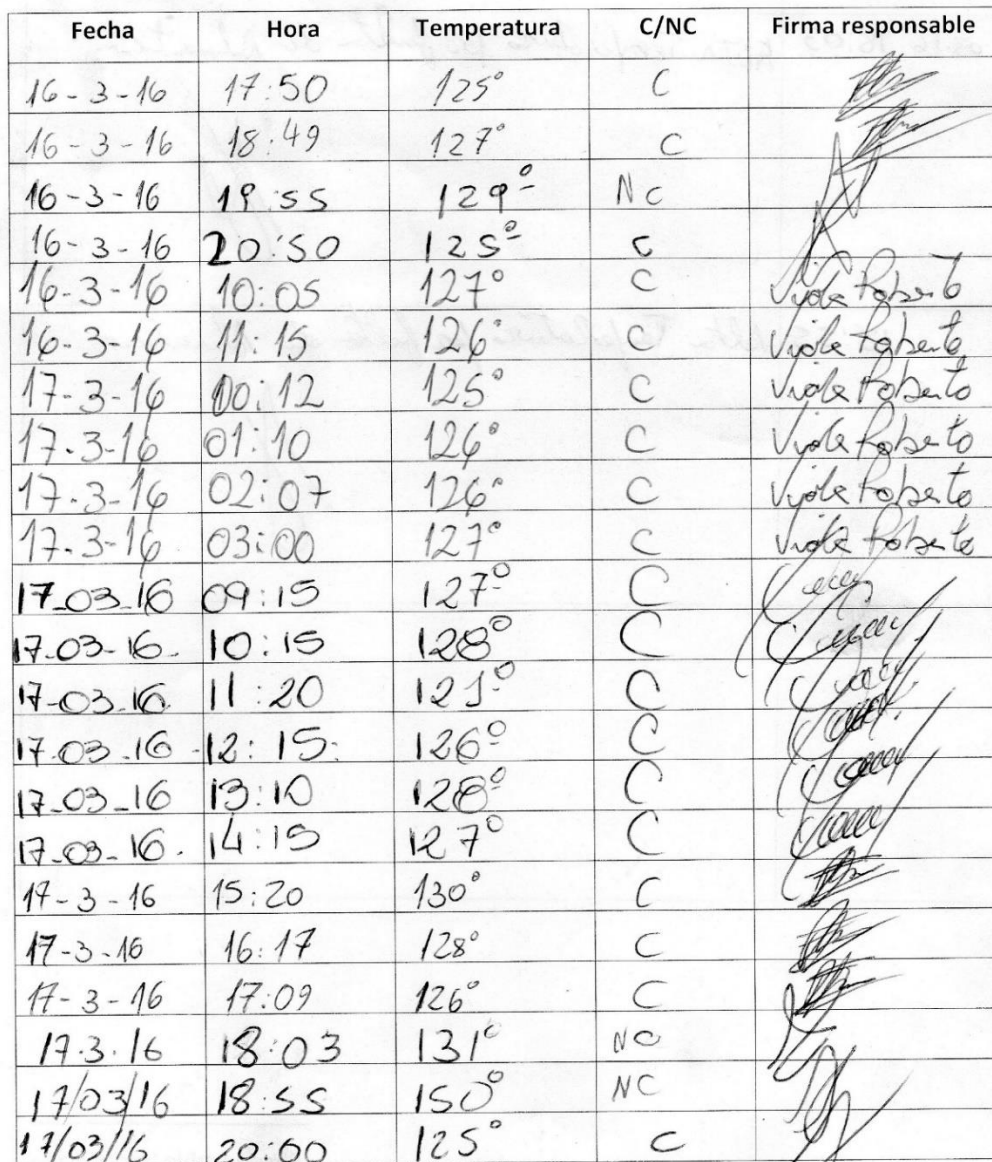 Fecha Hora Temperatura C/NC Firma responsable
16-3-16 17:50 125° C
16-3-16 18:49 127° C
16-3-16 19:55 129° NC
16-3-16 20:50 125° C
16-3-16 10:05 127° C Viola Roberto
16-3-16 11:15 126° C Viola Roberto
17-3-16 00:12 125° C Viola Roberto
17-3-16 01:10 126° C Viola Roberto
17-3-16 02:07 126° C Viola Roberto
17-3-16 03:00 127° C Viola Roberto
17-03-16 09:15 127° C
17-03-16. 10:15 128° C
17-03-16. 11:20 C
17-03-16 12:15 126° C
17-03-16 13:10 128° C
17-03-16. 14:15 127° C
17-3-16 15:20 130° C
17-3-16 16:17 128° C
17-3-16 17:09 126° C
17.3.16 18:03 131° NC
17/03/16 18:55 150° NC
17/03/16 20:00 125° C